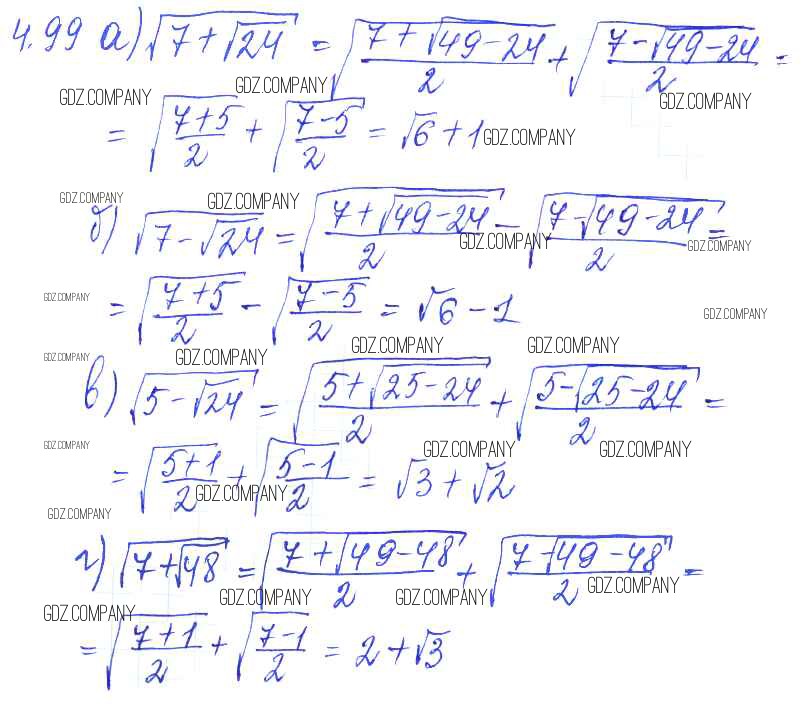 4.99 а) √(7+√24) = √((7+√(49-24))/2) + √((7-√(49-24))/2) =
GDZ.COMPANY GDZ.COMPANY GDZ.COMPANY
= √((7+5)/2) + √((7-5)/2) = √6 + 1 GDZ.COMPANY
GDZ.COMPANY GDZ.COMPANY
б) √(7-√24) = √((7+√(49-24))/2) - √((7-√(49-24))/2) =
GDZ.COMPANY GDZ.COMPANY
GDZ.COMPANY
= √((7+5)/2) - √((7-5)/2) = √6 - 1 GDZ.COMPANY
GDZ.COMPANY GDZ.COMPANY GDZ.COMPANY GDZ.COMPANY
в) √(5-√24) = √((5+√(25-24))/2) + √((5-√(25-24))/2) =
GDZ.COMPANY GDZ.COMPANY GDZ.COMPANY
= √((5+1)/2) + √((5-1)/2) = √3 + √2
GDZ.COMPANY
GDZ.COMPANY
г) √(7+√48) = √((7+√(49-48))/2) + √((7-√(49-48))/2) =
GDZ.COMPANY GDZ.COMPANY GDZ.COMPANY GDZ.COMPANY
= √((7+1)/2) + √((7-1)/2) = 2 + √3